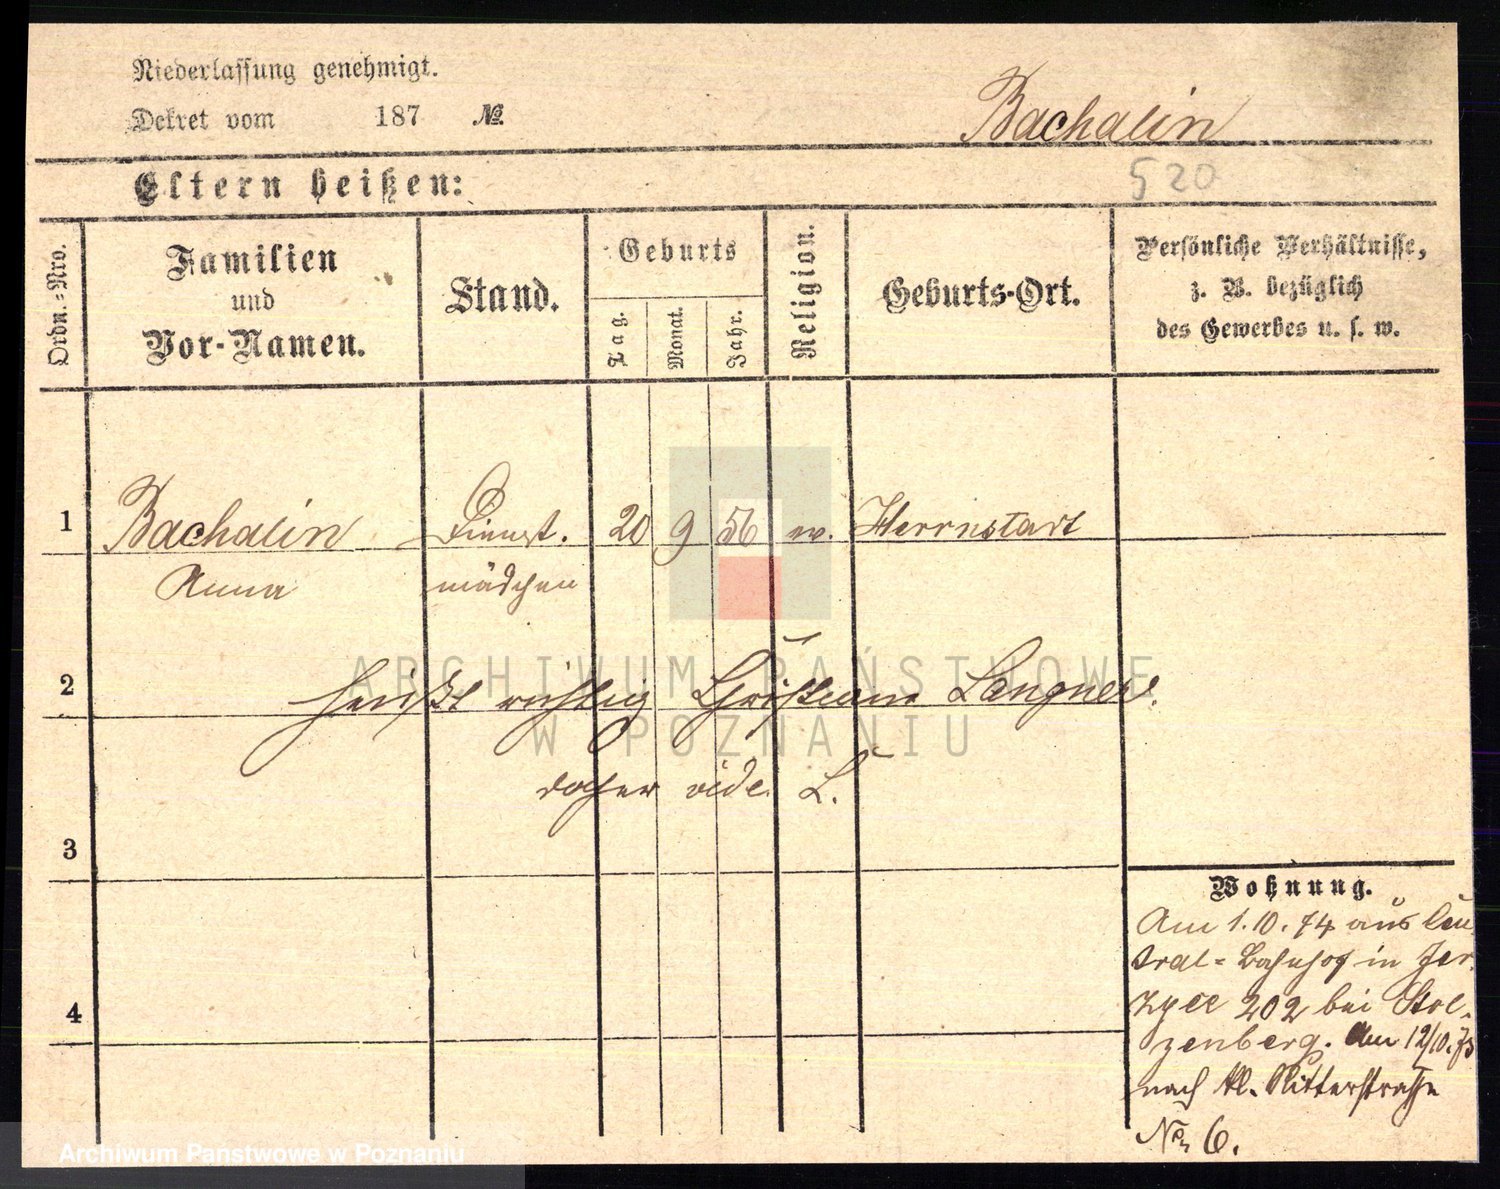 Niederlassung genehmigt.
Dekret vom 187 №
Bachalin
520
Eltern heißen:
Ordn.=Nro.
Familien
und
Vor-Namen.
Stand.
Geburts
Tag.
Monat.
Jahr.
Religion.
Geburts-Ort.
Persönliche Verhältnisse,
z. B. bezüglich
des Gewerbes u. s. w.
1 Bachalin Dienst. 20 9 56 ev. Herrnstadt
Anna mädchen
2 heißt richtig Christiane Langner.
daher vide L.
3
Wohnung.
Am 1.10.74 aus Cen
tral=Bahnhof in Jer
zyce 202 bei Stol
zenberg. Am 12/10.75
nach kl. Ritterstraße
No 6.
4
ARCHIWUM PAŃSTWOWE
W POZNANIU
Archiwum Państwowe w Poznaniu